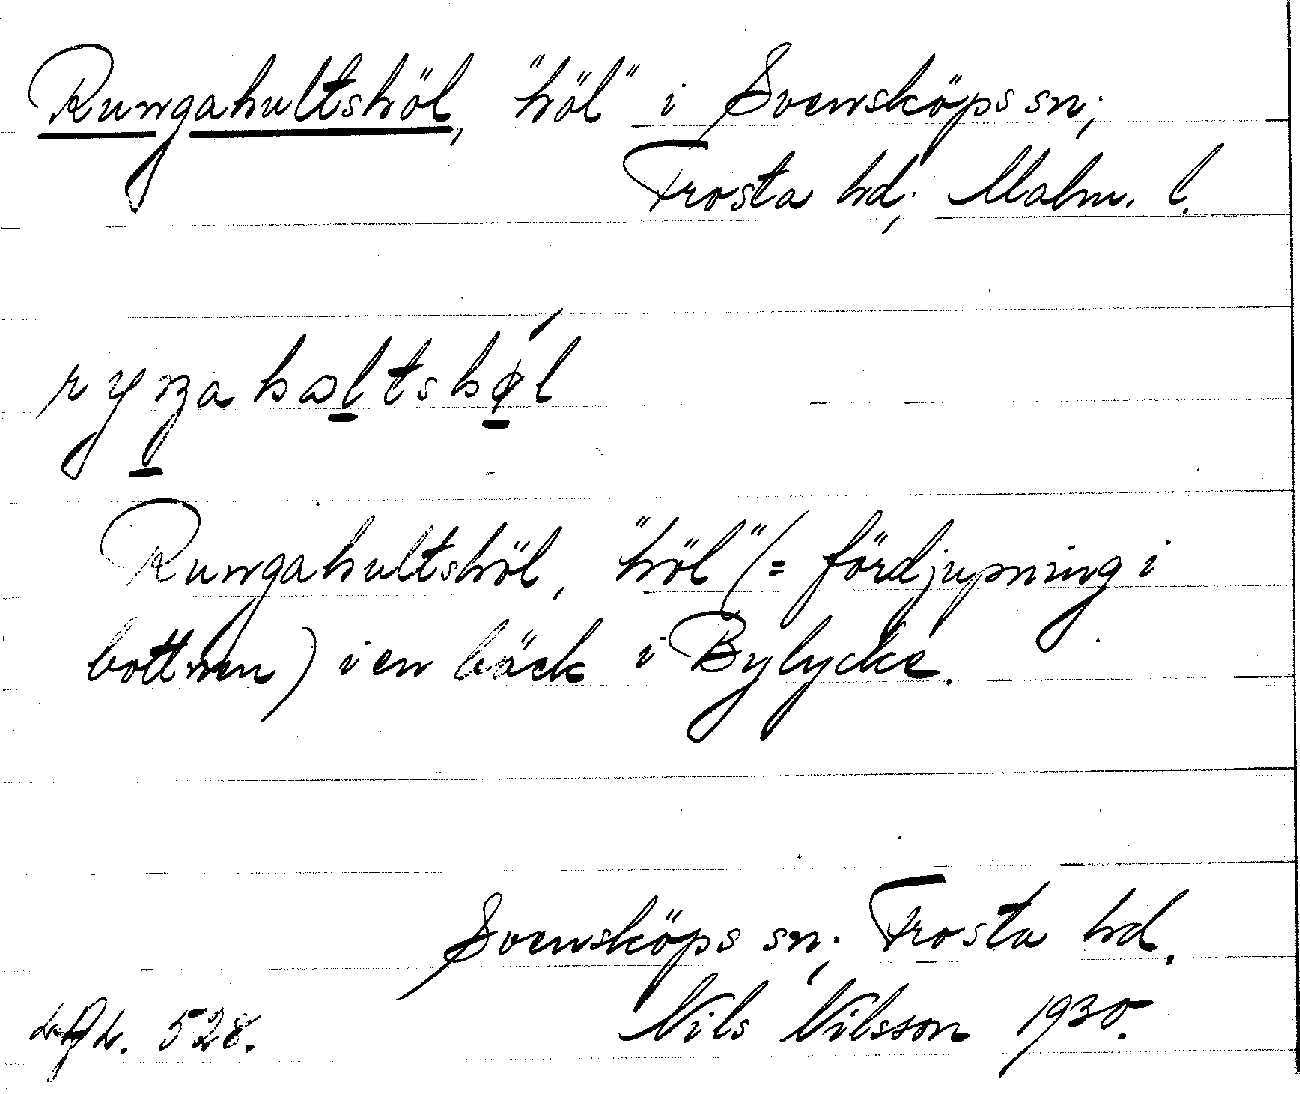 Rungahultshöl, "höl" i Svensköps sn;
Frosta hd; Malm. l.
Rungahultshöl, "höl" (= fördjupning i
bottnen) i en bäck i Bylycke.
Svensköps sn; Frosta hd.
528. Nils Nilsson 1930.